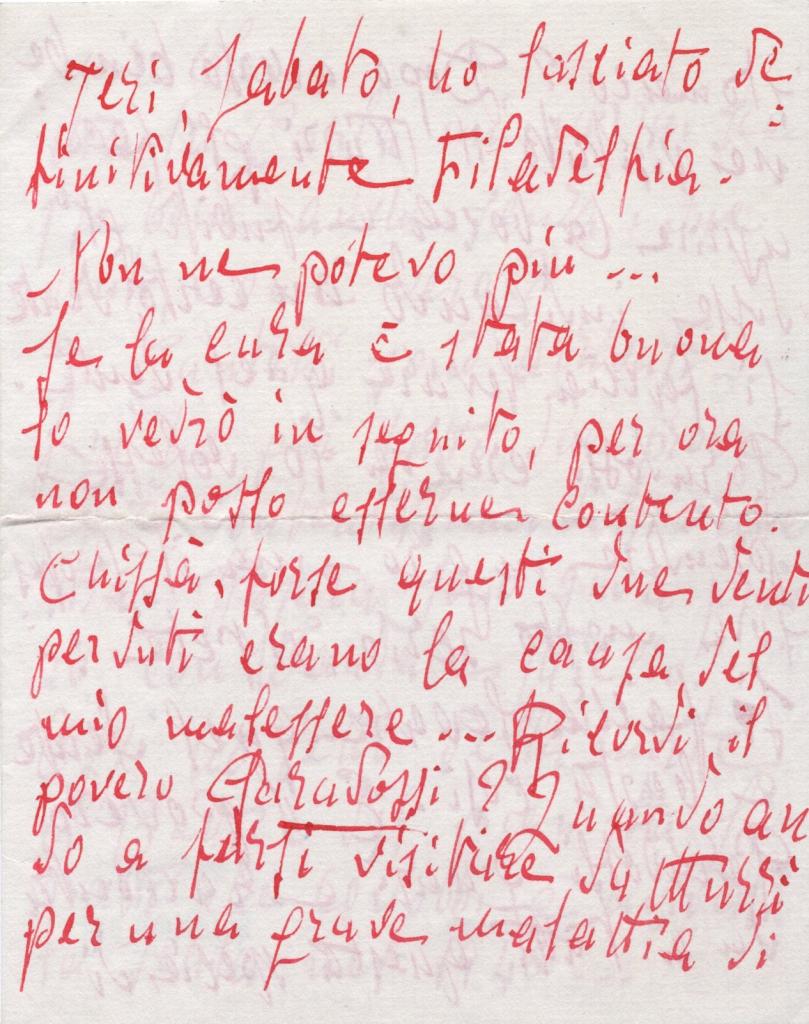 Ieri, Sabato, ho lasciato de=
finitivamente Filadelfia.
Non ne potevo più ...
Se la cura è stata buona
lo vedrò in seguito, per ora
non posso esserne contento.
Chissà, forse questi due denti
perduti erano la causa del
mio malessere ... Ricordi il
povero Paradossi? Quando an
dò a farsi visitare da Murri
per una grave malattia di